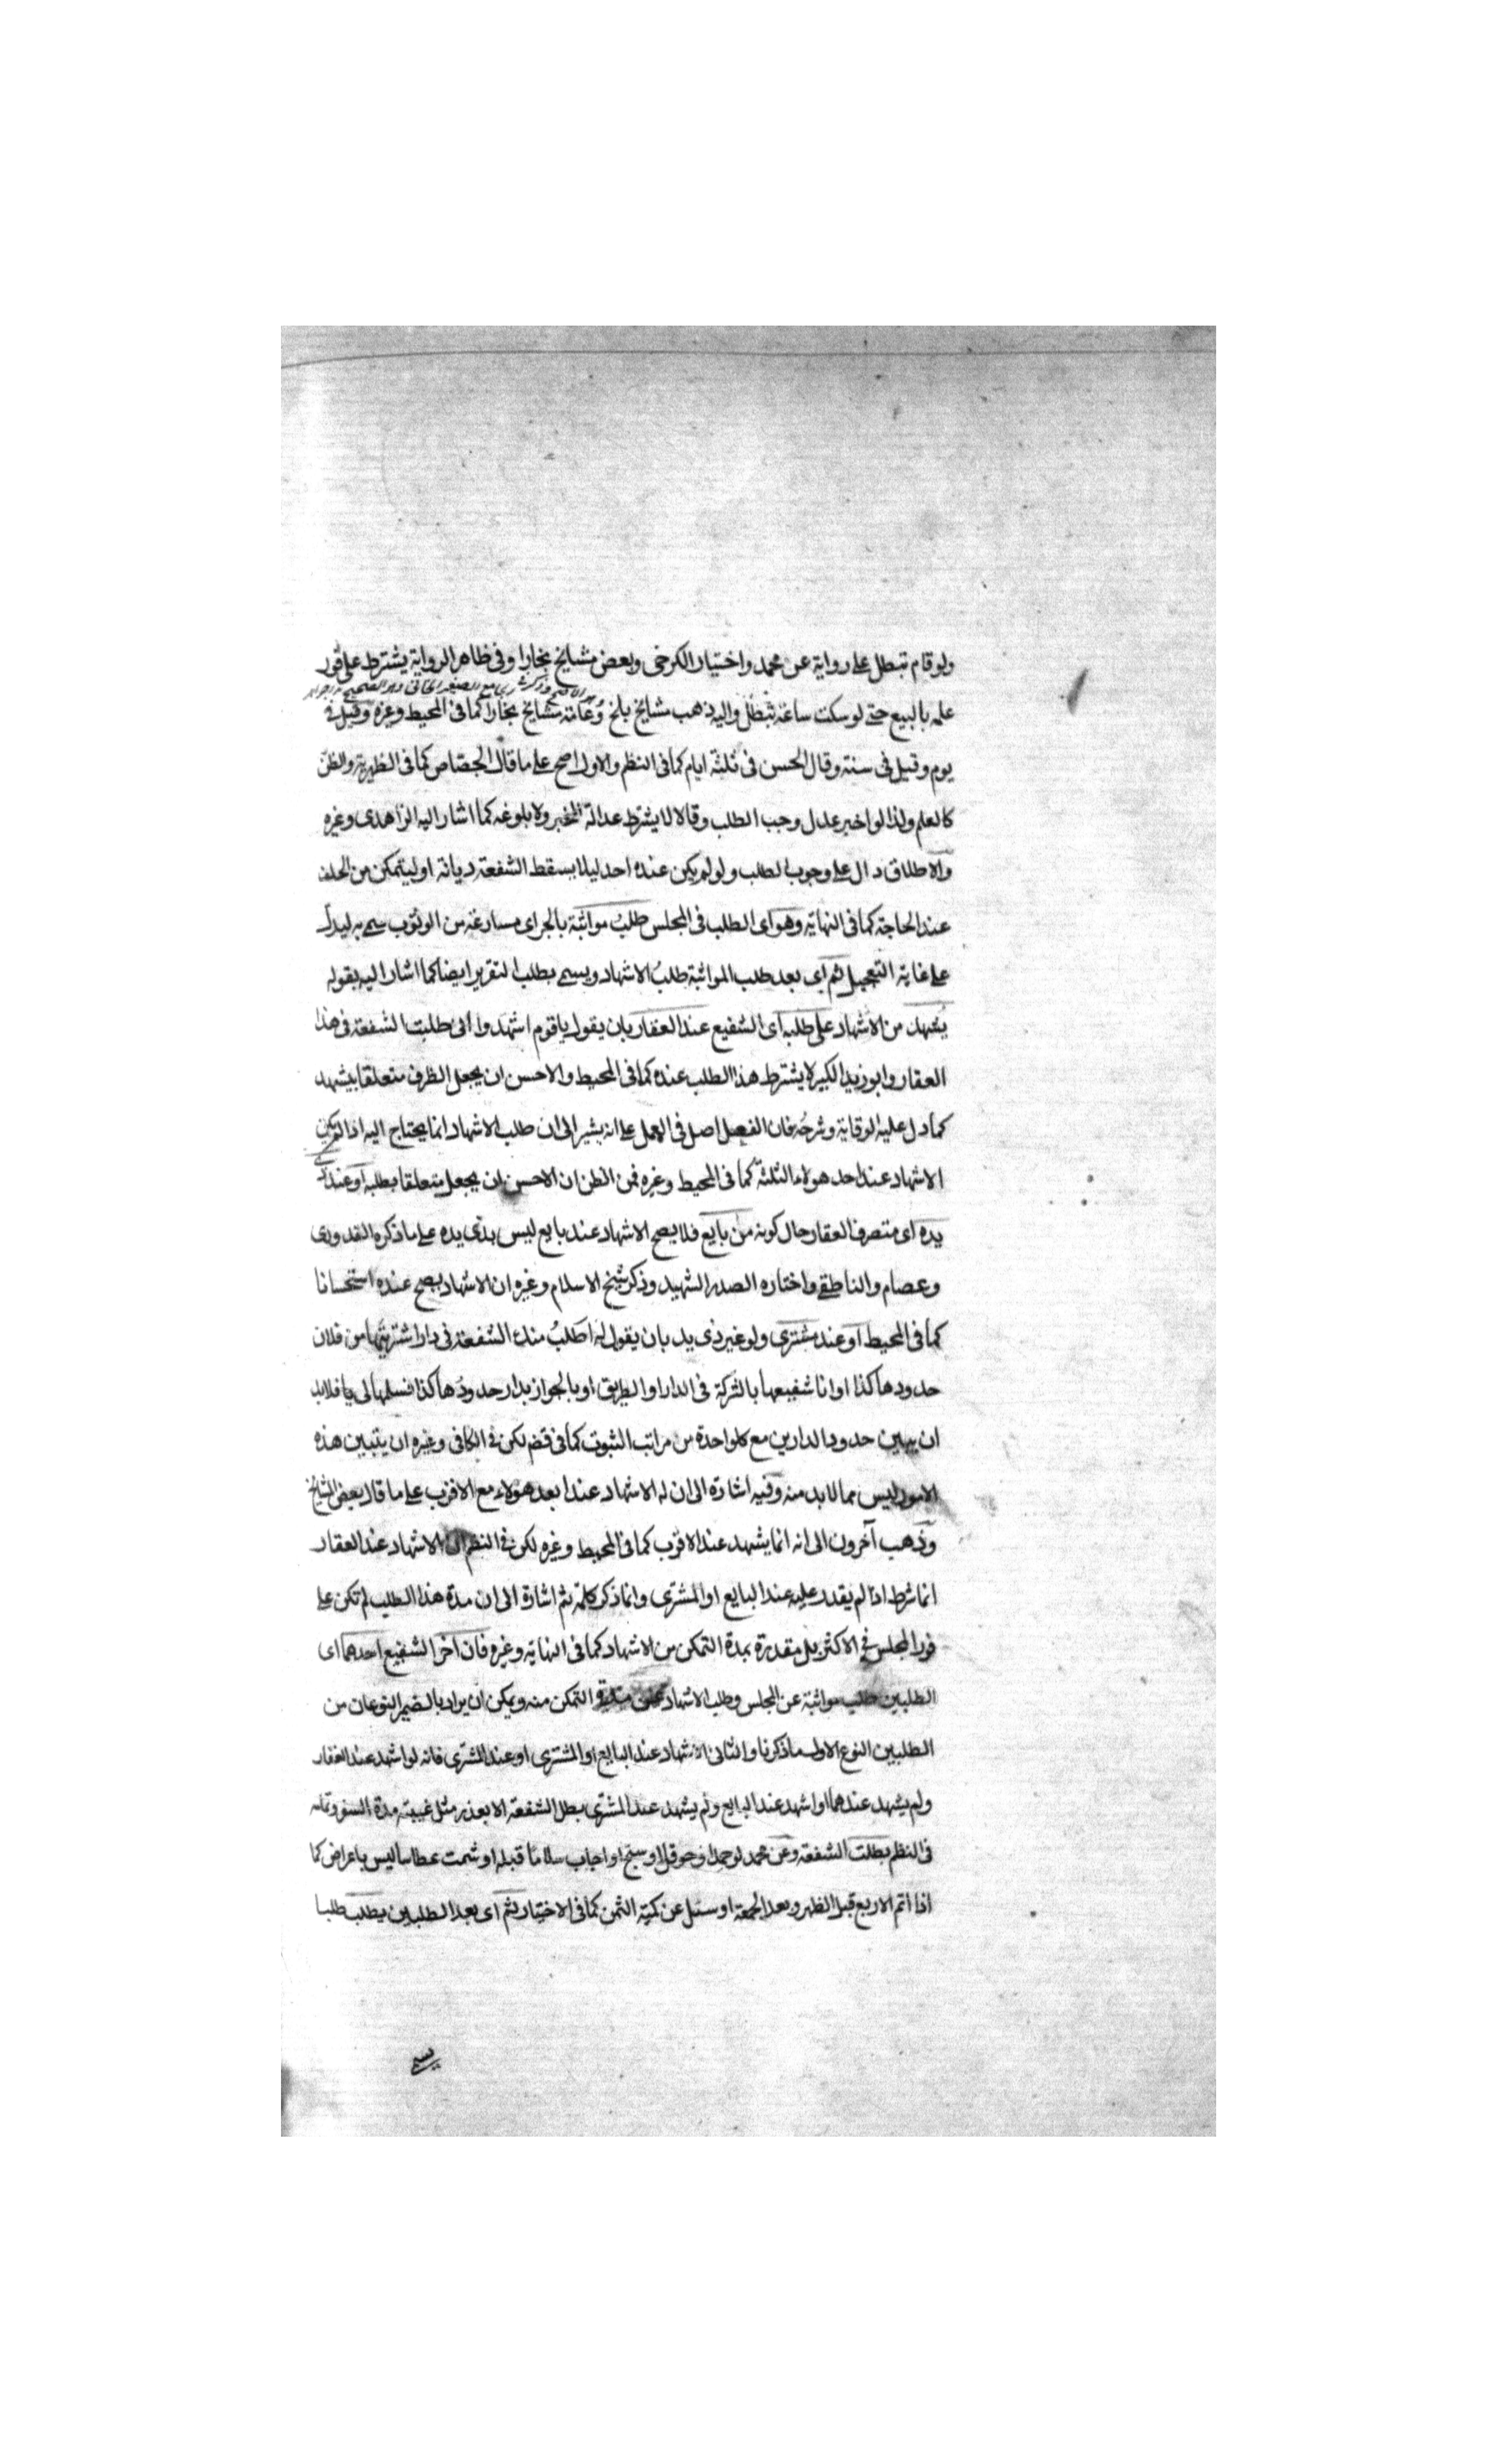 ولو قام تبطل على رواية عن محمد واختيار الكرخي وبعض مشايخ بخارا وفي ظاهر الرواية يشترط على فور
علمه بالبيع حتى لو سكت ساعة تبطل واليه ذهب مشايخ بلخ وعامة مشايخ بخارا كما في المحيط وغيره وقيل في
يوم وقيل في سنة وقال الحسن في ثلثة ايام كما في النظم والاول اصح على ما قال الجصاص كما في الظهيرية والظن
كالعلم ولذا لو اخبر عدل وجب الطلب وقالا لا يشترط عدالة المخبر ولا بلوغه كما اشار اليه الزاهدي وغيره
والاطلاق دال على وجوب الطلب ولو لم يكن عنده احد ليلا يسقط الشفعة ديانة او ليتمكن من الحلف
عند الحاجة كما في النهاية وهو اي الطلب في المجلس طلب مواثبة بالجر اي مسارعة من الوثوب سمي به ليدل
على غاية التعجيل ثم اي بعد طلب المواثبة طلب الاشهاد ويسمى بطلب التقرير ايضا كما اشار اليه بقوله
يشهد من الاشهاد على طلبه اي الشفيع عند العقار بان يقول يا قوم اشهدوا اني طلبت الشفعة في هذا
العقار وابو زيد الكبير لا يشترط هذا الطلب عنده كما في المحيط والاحسن ان يجعل الظرف متعلقا بيشهد
كما دل عليه الوقاية وشرحه فان الفعل اصل في العمل على انه يشير الى ان طلب الاشهاد انما يحتاج اليه اذا لم يكن
الاشهاد عند احد هولاء الثلثة كما في المحيط وغيره فمن الظن ان الاحسن ان يجعل متعلقا بطلبه او عند ذي
يده اي متصرف العقار حال كونه من بايع فلا يصح الاشهاد عند بايع ليس بذي يده على ما ذكره القدوري
وعصام والناطفي واختاره الصدر الشهيد وذكر شيخ الاسلام وغيره ان الاشهاد يصح عنده استحسانا
كما في المحيط او عند مشتري ولو غير ذي يد بان يقول له اطلب منك الشفعة في دار اشتريتها من فلان
حدودها كذا او انا شفيعها بالشركة في الدار او الطريق او بالجوار بدار حدودها كذا فسلمها لي يا فلابد
ان يبين حدود الدارين مع كل واحدة من مراتب الثبوت كما في قض لكن في الكافي وغيره ان يتبين هذه
الامور ليس مما لابد منه وفيه اشارة الى ان له الاشهاد عند ابعد هؤلاء مع الاقرب على ما قال بعض المشايخ
وذهب آخرون الى انه انما يشهد عند الاقرب كما في المحيط وغيره لكن في النظم ان الاشهاد عند العقار
انما شرط اذا لم يقدر عليه عند البايع او المشتري وانما ذكر كلمة ثم اشارة الى ان مدة هذا الطلب لم تكن على
فور المجلس في الاكثر بل مقدرة بمدة التمكن من الاشهاد كما في النهاية وغيره فان اخر الشفيع احدهما اي
الطلبين طلب مواثبة عن المجلس وطلب الاشهاد عن مدة التمكن منه ويمكن ان يراد بالضمير النوعان من
الطلبين النوع الاول ما ذكرنا والثاني الاشهاد عند البايع او المشتري او عند المشتري فانه لو اشهد عند العقار
ولم يشهد عندهما او اشهد عند البايع ولم يشهد عند المشتري بطل الشفعة الا بعذر مثل غيبته مدة السفر وتمامه
في النظم بطلت الشفعة وعن محمد لو حمد او حوقل او سبح او اجاب سلاما قبله او شمت عطاسا ليس باعراض كما
اذا اتم الاربع قبل الظهر وبعد الجمعة او سئل عن كمية الثمن كما في الاختيار ثم اي بعد الطلبين يطلب طلبا
يسمى